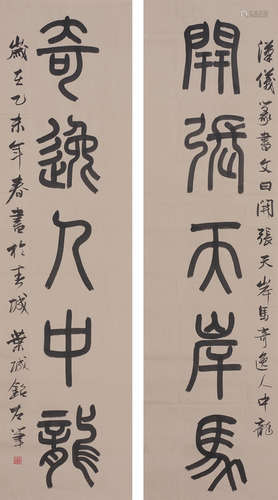 漢儀篆書文曰開張天岸馬奇逸人中龍
開張天岸馬
奇逸人中龍
歲在乙未年春書於春城葉誠銘左筆